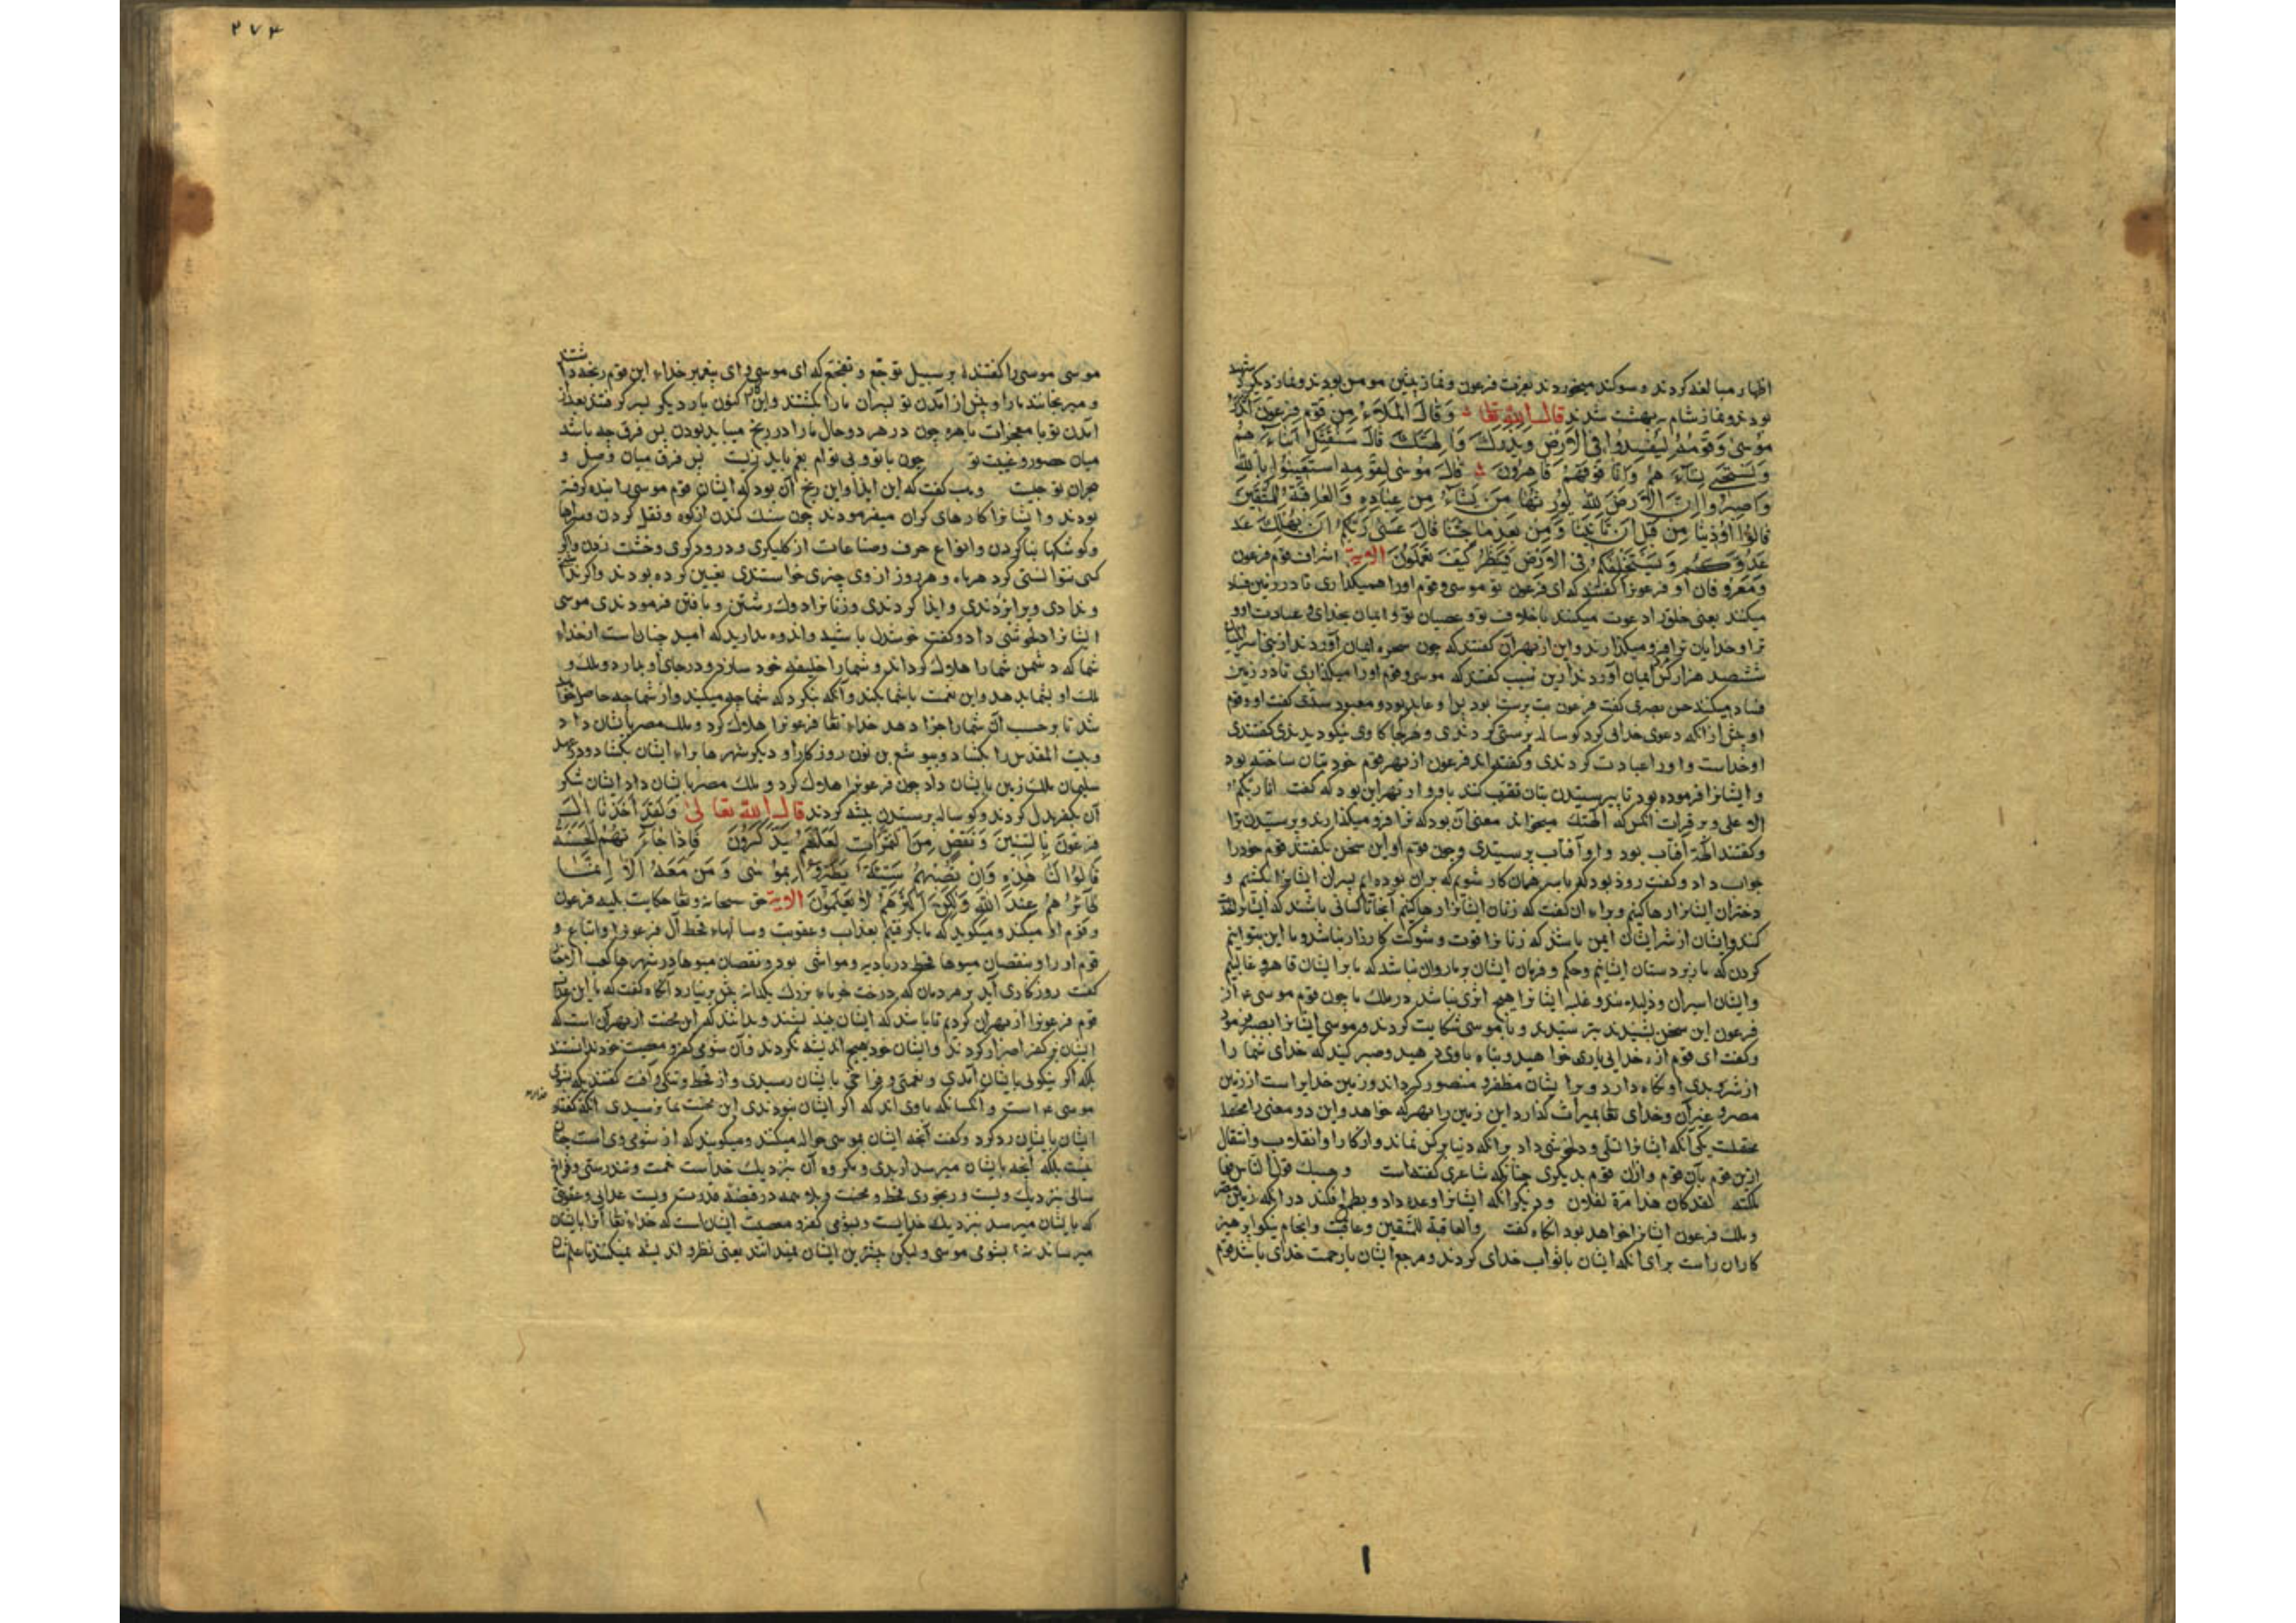 اظهار مبالغه کردند و سوکند میخوردند بعزت فرعون و نماز پیشین مومن بودند و نماز دیکر شهید
بودند و نماز شام به بهشت شدند قال الله تعالی وَقَالَ الْمَلَاءُ مِن قَوْمِ فِرْعَوْنَ اَتَذَرُ
مُوسٰی وَقَوْمَهُ لِیُفْسِدُوا فِی الْاَرْضِ وَیَذَرَكَ وَاٰلِهَتَكَ قَالَ سَنُقَتِّلُ اَبْنَاءَ هُمْ
وَنَسْتَحْیِی نِسَاءَ هُمْ وَاِنَّا فَوْقَهُمْ قَاهِرُونَ قَالَ مُوسٰی لِقَوْمِهِ اسْتَعِینُوا بِاللّٰهِ
وَاصْبِرُوا اِنَّ الْاَرْضَ لِلّٰهِ یُورِثُهَا مَن یَشَاءُ مِنْ عِبَادِهِ وَالْعَاقِبَةُ لِلْمُتَّقِینَ
قَالُوا اُوذِینَا مِن قَبْلِ اَن تَاْتِیَنَا وَمِن بَعْدِ مَا جِئْتَنَا قَالَ عَسٰی رَبُّكُمْ اَن یُهْلِكَ عَدُ
عَدُوَّكُمْ وَیَسْتَخْلِفَكُمْ فِی الْاَرْضِ فَیَنظُرَ كَیْفَ تَعْمَلُونَ الایة اشراف قوم فرعون
و معروفان او فرعونرا کفتند که ای فرعون تو موسی و قوم اورا همیکذاری تا در زمین فساد
میکنند یعنی خلق را دعوت میکنند باخلاف تو و عصیان تو و ایمان بخدای و عبادت او و
ترا و خدایان ترا فرو میکذارند و این از بهر آن کفتند که چون سحره ایمان آوردند از بنی اسرائیل
ششصد هزار کس ایمان آوردند ازین سبب کفتند که موسی و قوم اورا میکذاری تا در زمین
فساد میکنند حسن بصری کفت فرعون بت پرست بود او عابد بود و معبود سدی کفت او و قوم
او پیش از آنکه دعوی خدائی کرد کوساله پرستی کردندی و هر کجا کاوی نیکو دیدندی کفتندی
او خداست و اورا عبادت کردندی و کفته‌اند فرعون از بهر قوم خود بتان ساخته بود
و ایشانرا فرموده بود تا بپرستیدن بتان تقرب کنند باو و از بهر این بود که کفت انا ربکم
الاعلی و بر قرات آنکس که الهتك میخواند معنی آن بود که ترا فرو میکذارند و پرستیدن ترا
و کفتند الهة آفتاب بود و او آفتاب پرستیدی و چون قوم او این سخن بکفتند قوم خودرا
جواب داد و کفت زود بود که ما بر سر همان کار شویم که بران بوده ایم پسران ایشانرا بکشیم و
دختران ایشانرا رها کنیم و برای آن کفت که زنان ایشانرا رها کنیم
کنند و ایشان از شر ایشان ایمن باشند که زنانرا قوت و شوکت کارزار نباشد و ما این بتوانیم
کردن که ما زبردستان ایشانیم و حکم و فرمان ایشان بر ما روان نباشد که ما بر ایشان قاهر و غالبیم
و ایشان اسیران و ذلیلند و غلبه ایشانرا هیچ اثری نباشد در ملك ما چون قوم موسی ع از
فرعون این سخن بشنیدند بترسیدند و با موسی شکایت کردند و موسی ایشانرا بصبر فرمود
و کفت ای قوم از خدای یاری خواهید و پناه باوی دهید و صبر کنید که خدای شما را
از شر و بدی او نکاه دارد و بر ایشان مظفر و منصور کرداند و زمین خدایراست از زمین
مصر و غیر آن و خدای تعالی بمیراث کذارد این زمین را بهر که خواهد و این دو معنی را محتمل
محتملست یکی آنکه ایشانرا تسلی و دلخوشی داد برانکه دنیا بر کس نماند و از کار او انقلاب و انتقال
ازین قوم بآن قوم و ازان قوم بدیکری چنانکه شاعری کفته است وحسبك قول الناس فیما
ملکته لقد کان هذا مرة لفلان و دیکر آنکه ایشانرا وعده داد و بطمع افکند در آنکه زمین مصر
و ملك فرعون ایشانرا خواهد بود آنکاه کفت والعاقبة للمتقین و عاقبت و انجام نیکو پرهیز
کاران راست برای آنکه ایشان با ثواب خدای کردند و مرجع ایشان با رحمت خدای باشد قوم
۲۷۴
موسی موسی را کفتند بر سبیل توجع و تفجع که ای موسی و ای پیغمبر خدای این قوم رنجه داشتند
و میرنجانند مارا و پیش از آمدن تو پسران مارا بکشتند و این کنون بار دیکر بسر کرفتند بعد از
آمدن تو با معجزات باهره چون در هر دو حال مارا در رنج میباید بودن پس فرق چه باشد
میان حضور و غیبت تو چون با تو و بی توام بغم باید زیست پس فرق میان وصل و
هجران تو چیست وهب کفت که این ایذا و این رنج آن بود که ایشان قوم موسی را بنده کرفته
بودند و ایشانرا کارهای کران میفرمودند چون سنك کندن از کوه و نقل کردن و سراها
و کوشکها بنا کردن و انواع حرف و صناعات از کلیکری و درودکری و خشت زدن و اکر
کسی نتوانستی کرد هر ماه و هر روز از وی چیزی خواستندی تعیین کرده بودند و اکر
ندادی ویرا بزدندی و ایذا کردندی و زنانرا دوك رشتن و بافتن فرمودندی موسی
ایشانرا دلخوشی داد و کفت خوشدل باشید و اندوه مدارید که امید چنان است از خدای
شما که دشمن شمارا هلاك کرداند و شمارا خلیفه خود سازد و در جای او بدارد و ملك و
ملك او بشما بدهد و این نعمت باشما بکند و آنکه بنکرد که شما چه میکنید و از شما چه حاصل خواهد
شد تا برحسب آن شمارا جزا دهد خدای تعا فرعونرا هلاك کرد و ملك مصر بایشان داد
و بیت المقدس را بکشاد و یوشع بن نون روزکار او دیکر شهرها برای ایشان بکشاد و در عهد
سلیمان ملك زمین بایشان داد چون فرعونرا هلاك کرد و ملك مصر بایشان داد ایشان شکر
آن بکفر بدل کردند و کوساله پرستیدن پیشه کردند قال الله تعالی وَلَقَدْ اَخَذْنَا اٰلَ
فِرْعَوْنَ بِالسِّنِینَ وَنَقْصٍ مِنَ الثَّمَرَاتِ لَعَلَّهُمْ یَذَّكَّرُونَ فَاِذَا جَاءَ تْهُمُ الْحَسَنَةُ
قَالُوا لَنَا هٰذِهِ وَاِنْ تُصِبْهُمْ سَیِّئَةٌ یَطَّیَّرُوا بِمُوسٰی وَمَنْ مَعَهُ اَلَا اِنَّمَا
طَائِرُهُمْ عِنْدَ اللّٰهِ وَلٰكِنَّ اَكْثَرَهُمْ لَا یَعْلَمُونَ الایة حق سبحانه و تعا حکایت بلیه فرعون
و قوم او میکند و میکوید که ما بکرفتیم بعذاب و عقوبت و سالهای قحط آل فرعونرا و اتباع و
قوم او را و بنقصان میوها قحط در بادیه و مواشی بود و نقصان میوها در شهرها کعب الاحبار
کفت روزکاری آید بر مردمان که درخت خرمای بزرك یکدانه بیش بر نیارد آنکاه کفت که ما این عذاب
قوم فرعونرا از بهر آن کردیم تا باشد که ایشان پند بشنوند و بدانند که این محنت از بهر آن است که
ایشان بر کفر اصرار کردند و ایشان خود هیچ اندیشه نکردند و آن شومی کفر و معصیت خود ندانستند
بلکه اکر نیکوئی بایشان آمدی و نعمتی و فراخی بایشان رسیدی و از قحط و تنکی و آفت کفتند که
موسی ع است و آنکسانکه باوی اند که اکر ایشان نبودندی این محنت بما نرسیدی آنکه کفته
ایشان بایشان رد کرد و کفت آنچه ایشان بموسی حواله میکنند و میکویند که از شومی وی است چنان
نیست بلکه آنچه بایشان میرسد از بدی و مکروه آن بنزدیك خداست نعمت و تندرستی و فراخ
سالی بنزدیك ویست و رنجوری و قحط و محنت و بلا همه در قبضه قدرت ویست عذابی و عقوبتی
که بایشان میرسد بنزدیك خدایست و بشومی کفر و معصیت ایشان است که خدای تعا آنرا بایشان
میرساند نه بشومی موسی و لیکن بیشترین ایشان نمیدانند یعنی نظر و اندیشه نمیکنند تا علمشان